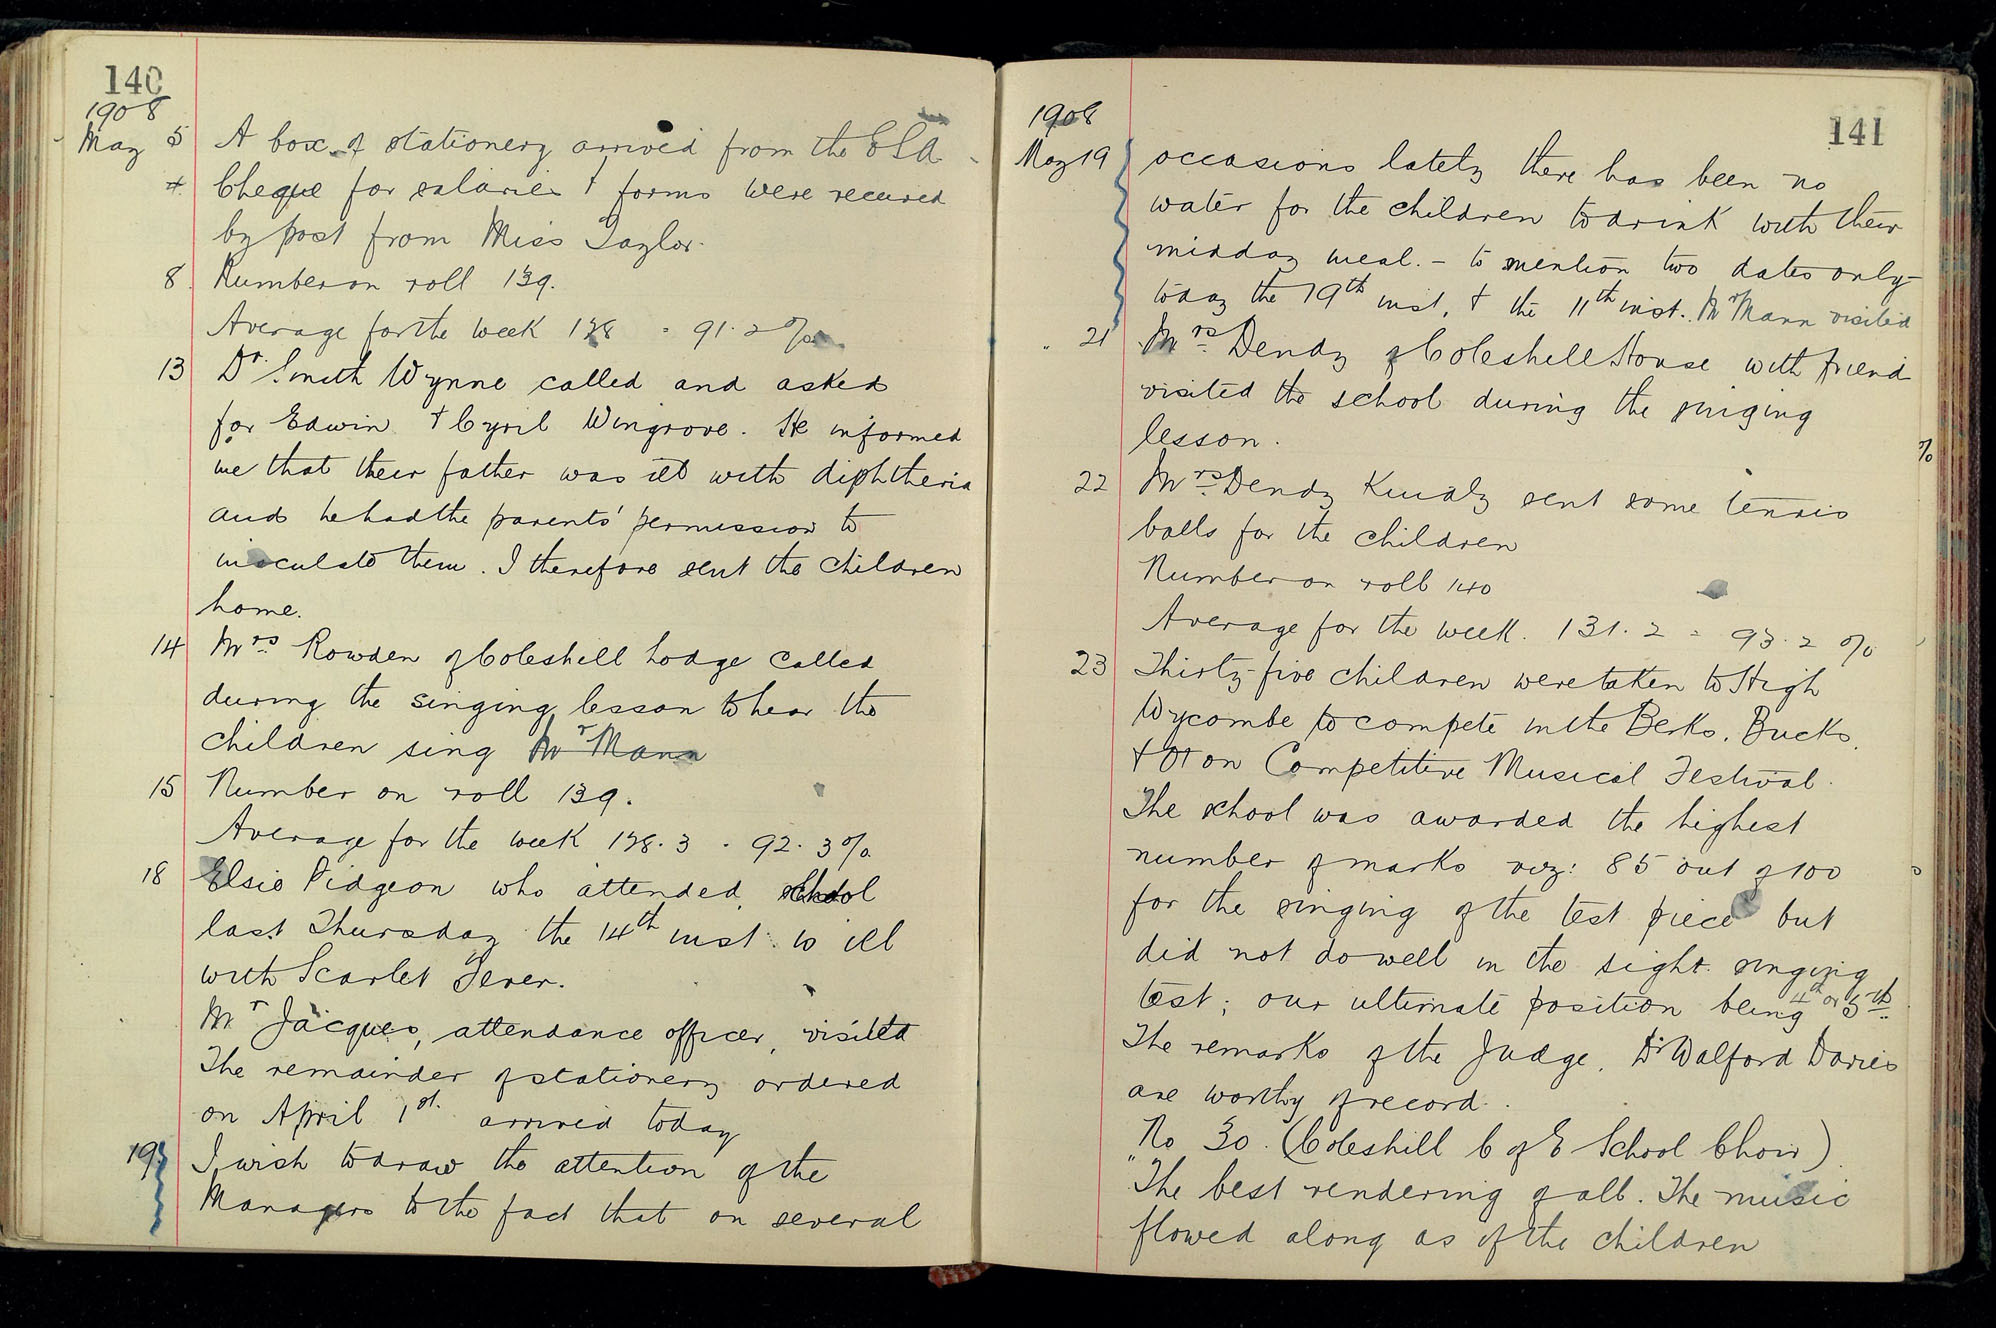 140
1908
May 5 A box of stationery arrived from the
Cheque for salaries + forms were received
by post from Miss Taylor.
8 Number on roll 139.
Average for the week 128 = 91.2 %
13 Dr. Smith Wynne called and asked
for Edwin + Cyril Wingrove. He informed
me that their father was ill with diphtheria
and he had the parents' permission to
inoculate them. I therefore sent the children
home.
14 Mrs Rowden of Coleshill Lodge called
during the singing lesson to hear the
children sing Mr Mann
15 Number on roll 139.
Average for the week 128.3 = 92.3%
18 Elsie Pidgeon who attended school
last Thursday the 14th inst. is ill
with Scarlet Fever.
Mr Jacques, attendance officer, visited
The remainder of stationery ordered
on April 1st. arrived today
19 I wish to draw the attention of the
Managers to the fact that on several
141
1908
May 19 occasions lately there has been no
water for the children to drink with their
midday meal. - to mention two dates only -
today the 19th inst, + the 11th inst. Mr Mann visited
" 21 Mrs Dendy of Coleshill House with friend
visited the school during the singing
lesson.
22 Mrs Dendy kindly sent some tennis
balls for the children
Number on roll 140
Average for the week. 131.2 = 93.2 %
23 Thirty-five children were taken to High
Wycombe to compete in the Berks, Bucks,
+ Oxon Competitive Musical Festival.
The school was awarded the highest
number of marks viz: 85 out of 100
for the singing of the test piece but
did not do well in the sight singing
test; our ultimate position being 4th or 5th.
The remarks of the Judge, Dr Walford Davies
are worthy of record.
No 30. (Coleshill C of E School Choir)
"The best rendering of all. The music
flowed along as if the children